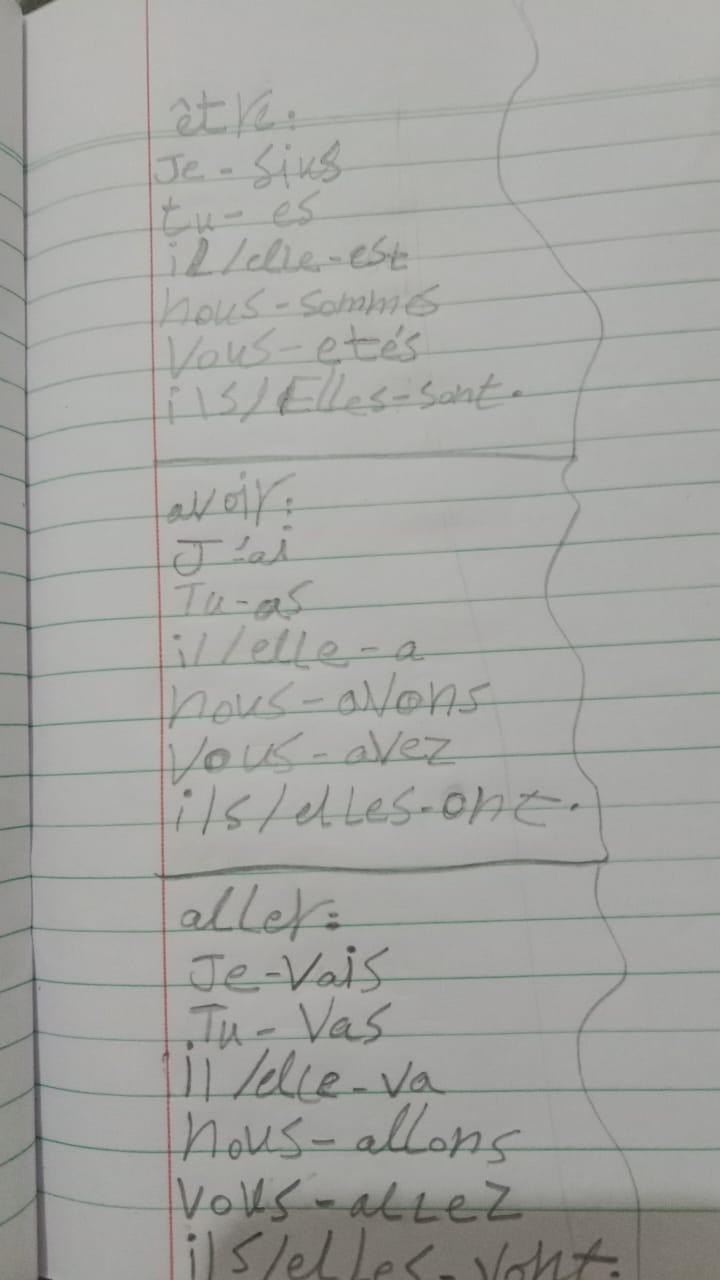 être:
Je - sius
tu - es
il/elle - est
nous - sommes
Vous - etés
ils/Elles - sont.
avoir:
J'ai
Tu - as
il/elle - a
nous - avons
Vous - avez
ils/elles - ont.
aller:
Je - Vais
Tu - Vas
il/elle - va
nous - allons
vous - allez
ils/elles - vont.